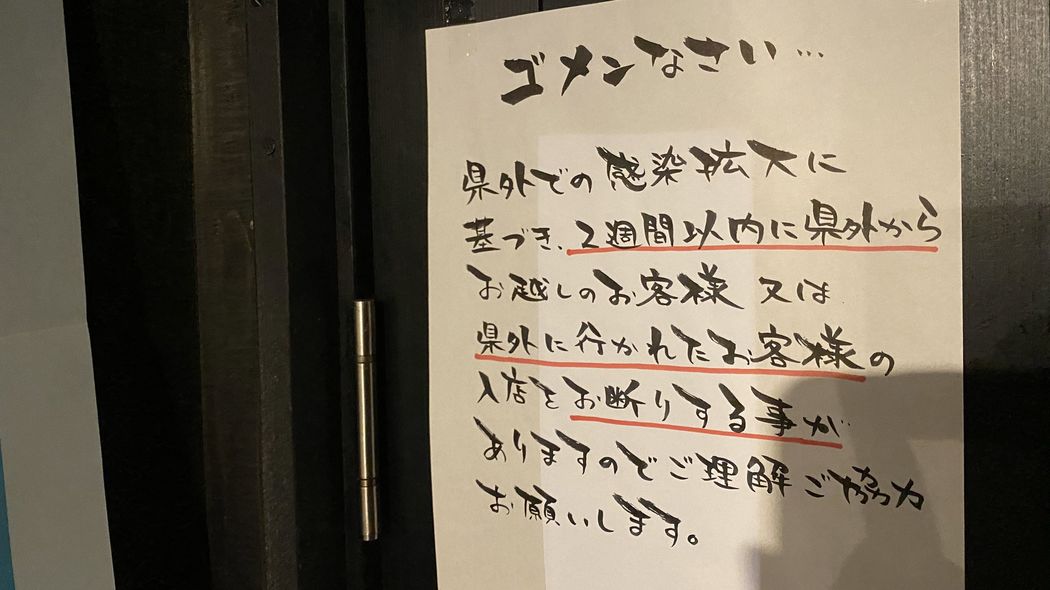 ゴメンなさい…
県外での感染拡大に
基づき、2週間以内に県外から
お越しのお客様 又は
県外に行かれたお客様の
入店をお断りする事が
ありますのでご理解ご協力
お願いします。